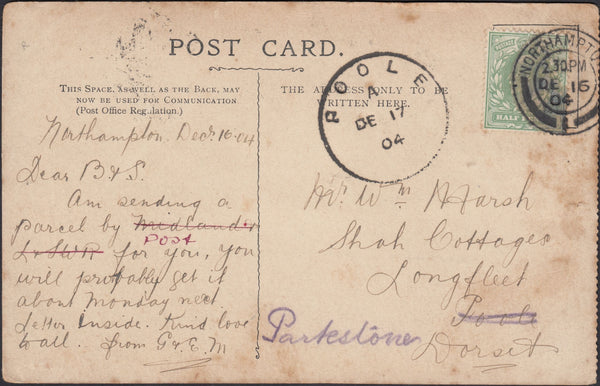 POST CARD.
THIS SPACE, AS WELL AS THE BACK, MAY
NOW BE USED FOR COMMUNICATION
(Post Office Regulation.)
THE ADDRESS ONLY TO BE
WRITTEN HERE.
NORTHAMPTO
2.30PM
DE 16
04
1
HALF
POOLE
A
DE 17
04
Northampton. Decr 16-04
Dear B & S.
Am sending a
parcel by Midland &
POST
L & SWR for you, you
will probably get it
about Monday next.
Letter inside. Kind love
to all. from G & E. M
Mr. Wm Marsh
Shah Cottages
Longfleet
Poole
Parkestone
Dorset